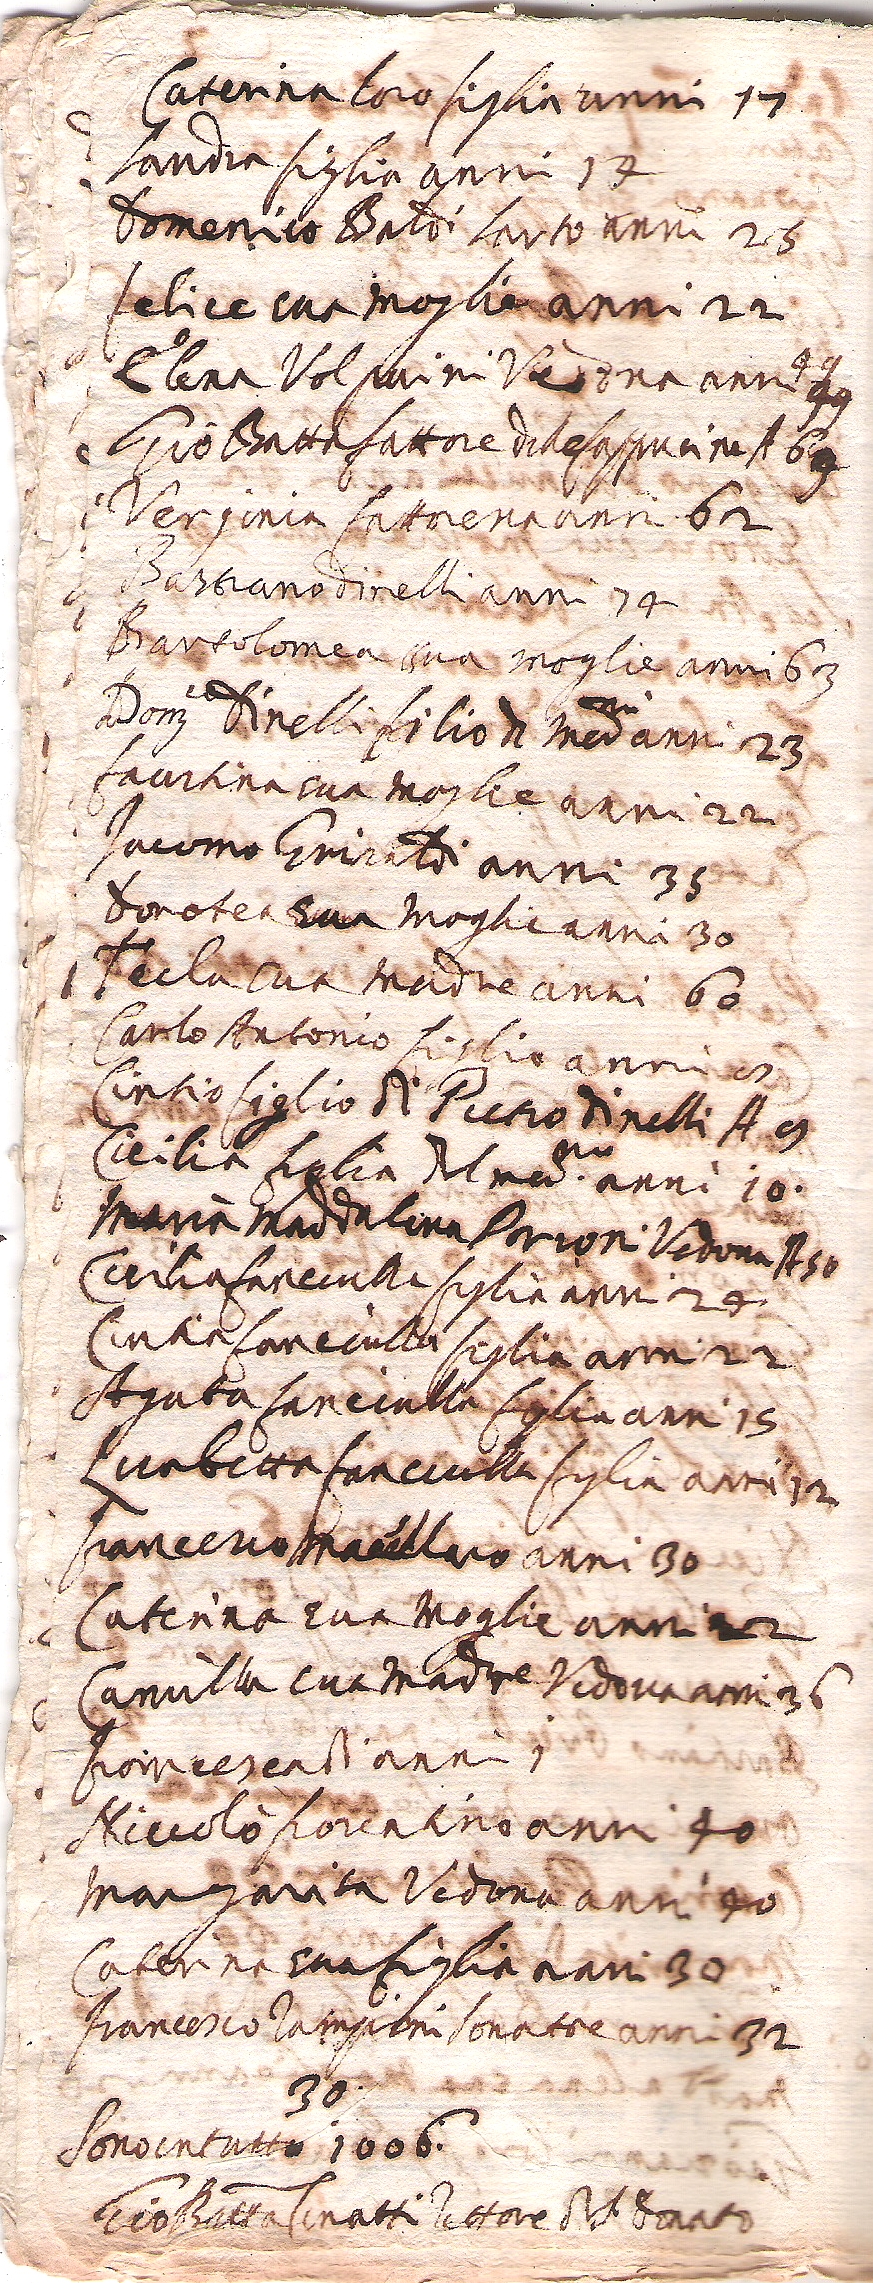 Caterina loro figlia anni 17
Landra figlia anni 14
Domenico Baldi sarto anni 25
Felice sua moglie anni 22
Elena Volpaini Vedova anni 49
Gio Batta fattore delle Cappucine A 69
Verginia fattoressa anni 62
Bastiano Dinelli anni 74
Bartolomea sua moglie anni 63
Dom.co Dinelli filio di med.mi anni 23
faustina sua moglie anni 22
Jacomo Griraldi anni 35
Dorotea sua Moglie anni 30
Tecla sua madre anni 60
Carlo Antonio figlio anni
Cintio figlio di Pietro Dinelli A 9
Cicilia figlia del med.mo anni 10.
Maria Maddalena Vedova A 50
Cicilia fanciulla figlia anni 24
Cintia fanciulla figlia anni 22
Agata fanciulla figlia anni 15
Lisabetta fanciulla figlia anni 12
francesco Macellaro anni 30
Caterina sua Moglie anni 22
Camilla sua Madre Vedova anni 36
francesca di anni 1
Niccolò fiorentino anni 40
Margarita Vedova anni 40
Caterina sua figlia anni 30
francesco Zampini sonatore anni 32
30.
Sono in tutto 1006.
Gio Batta Rettore di S. Donato